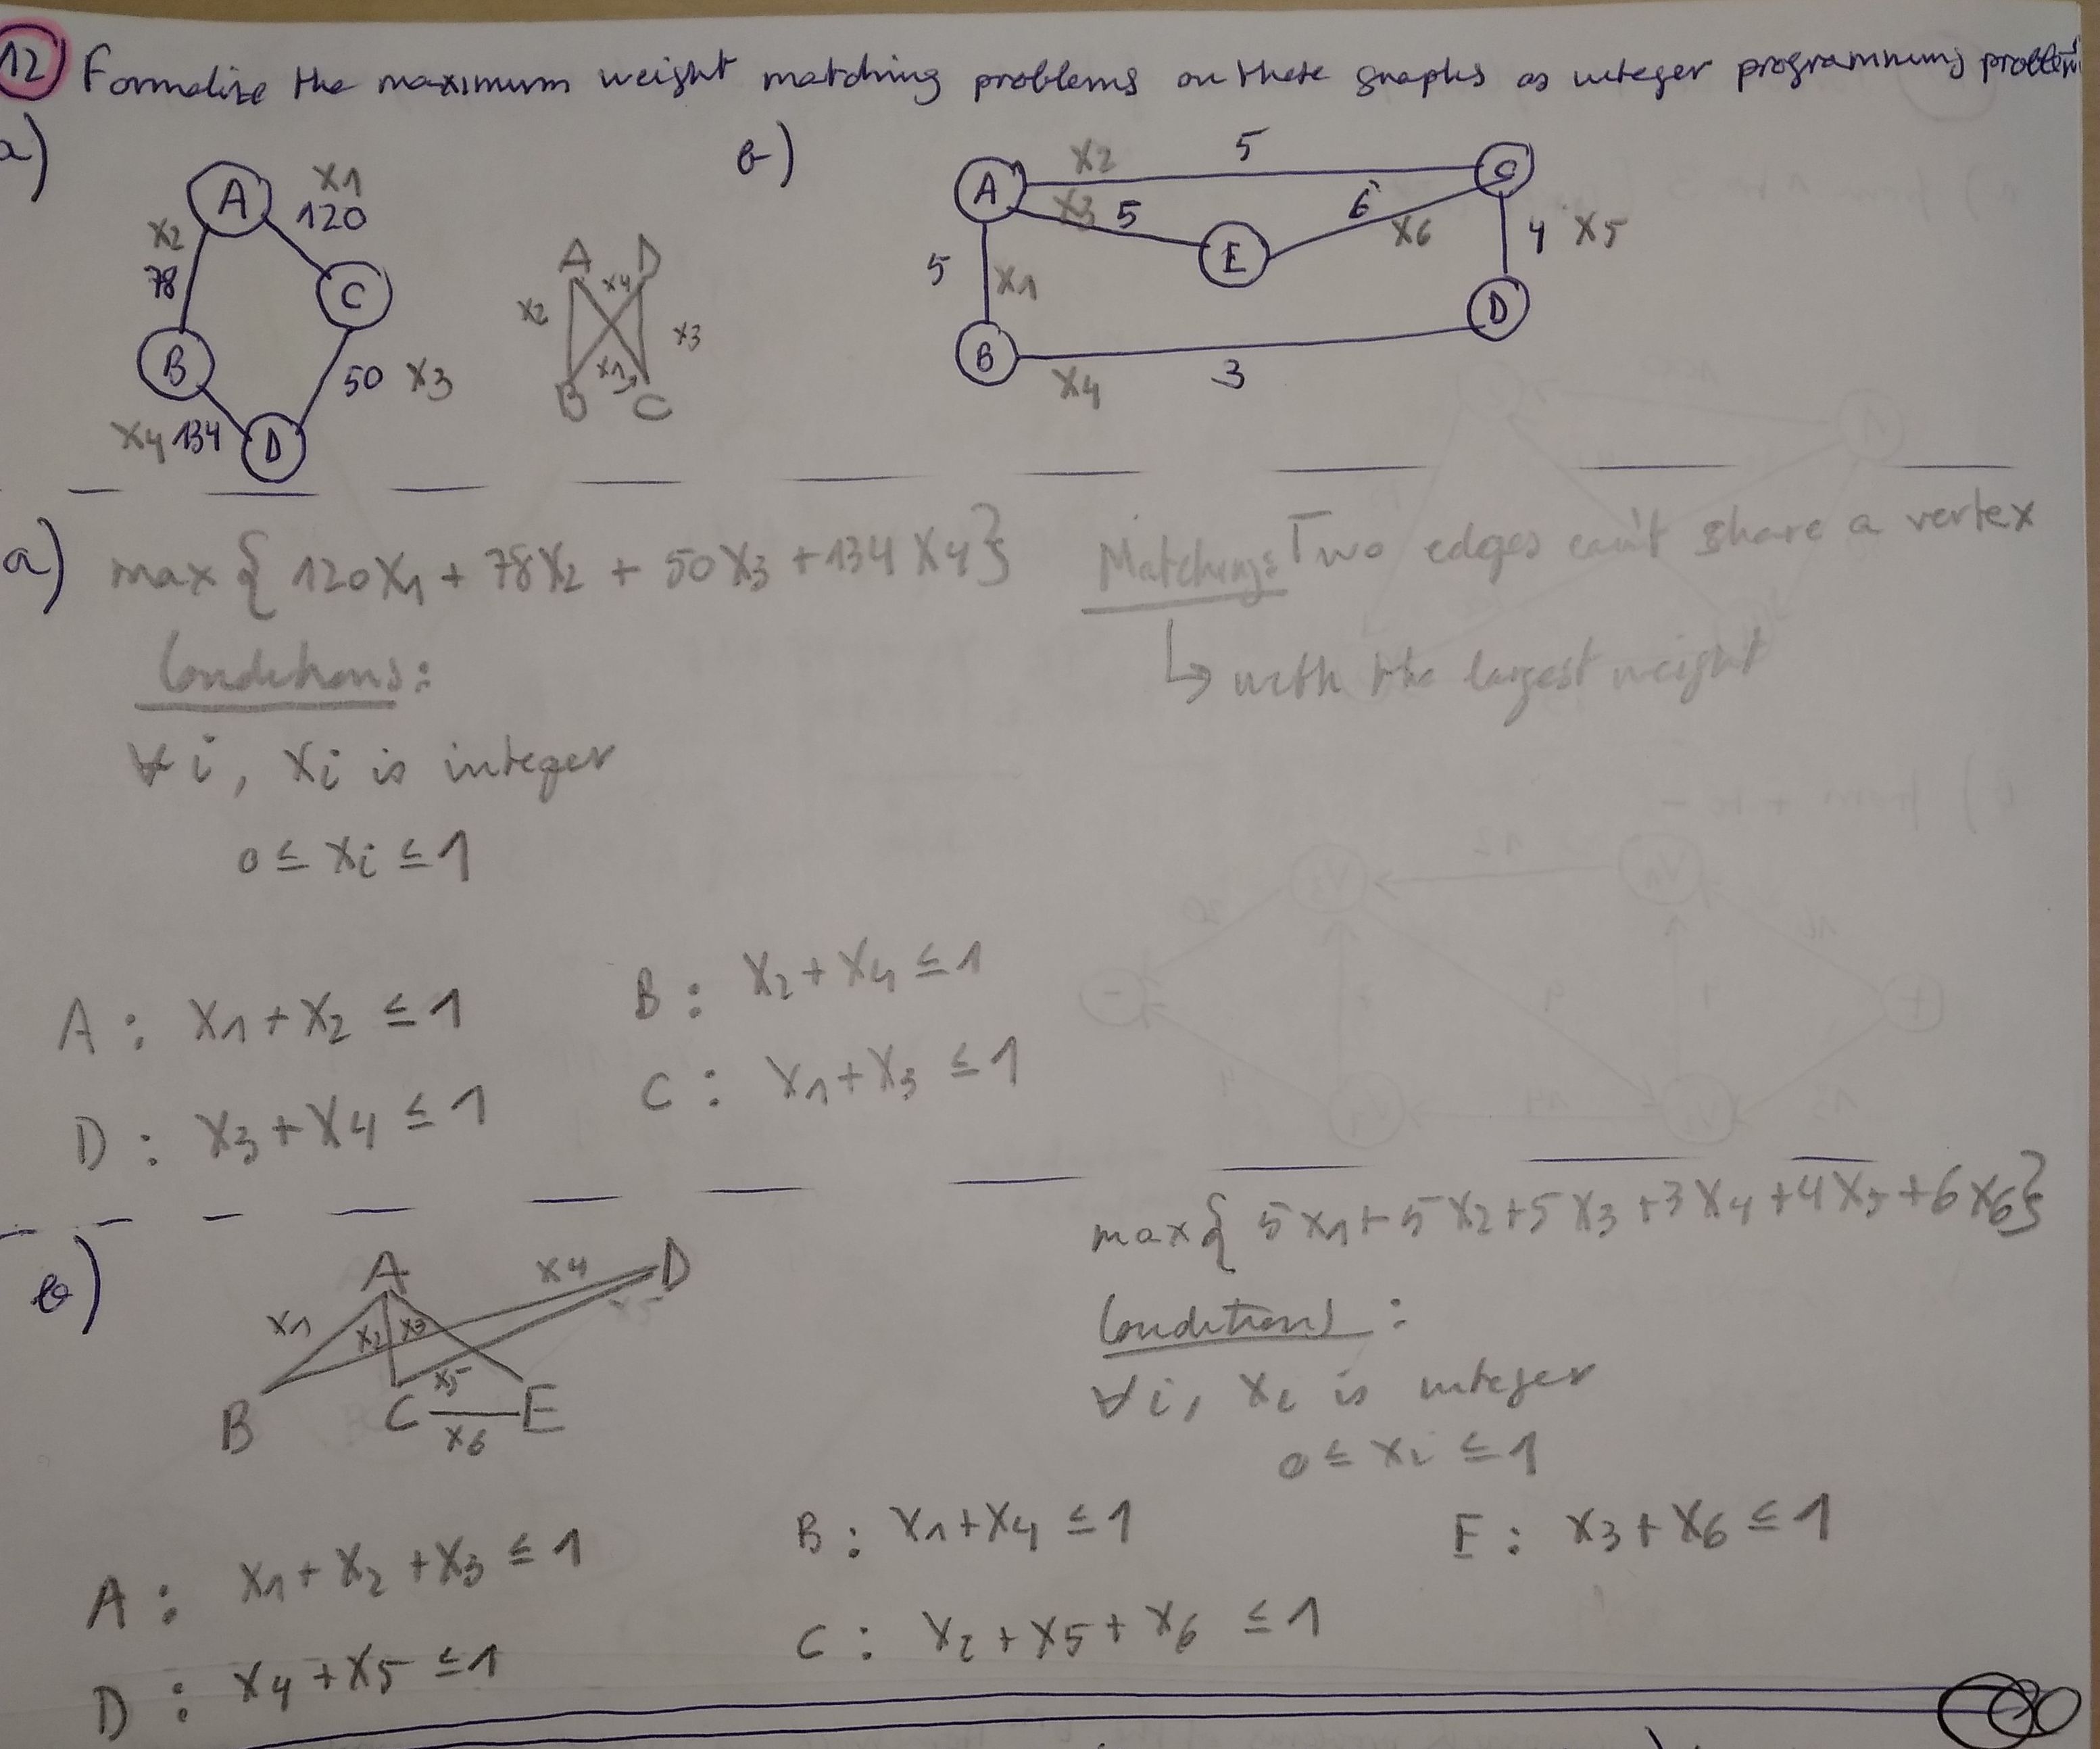 12) Formalize the maximum weight matching problems on these graphs as integer programming problem
a)
A
X1
120
X2
78
C
B
50 X3
X4 134
D
A D
X2 X4 X3
X1
B C
b)
X2 5
A C
X3 5 6 X6
E
4 X5
5 X1
D
B
X4 3
a) max { 120X1 + 78X2 + 50X3 + 134X4}
Matching: Two edges can't share a vertex
↳ with the largest weight
Conditions:
∀ i, Xi is integer
0 ≤ Xi ≤ 1
A : X1 + X2 ≤ 1 B : X2 + X4 ≤ 1
D : X3 + X4 ≤ 1 C : X1 + X3 ≤ 1
b)
A X4 D
X1 X2 X3 X5
X5
B C E
X6
max{ 5X1 + 5X2 + 5X3 + 3X4 + 4X5 + 6X6}
Conditions :
∀ i, Xi is integer
0 ≤ Xi ≤ 1
A : X1 + X2 + X3 ≤ 1 B : X1 + X4 ≤ 1 E : X3 + X6 ≤ 1
D : X4 + X5 ≤ 1 C : X2 + X5 + X6 ≤ 1